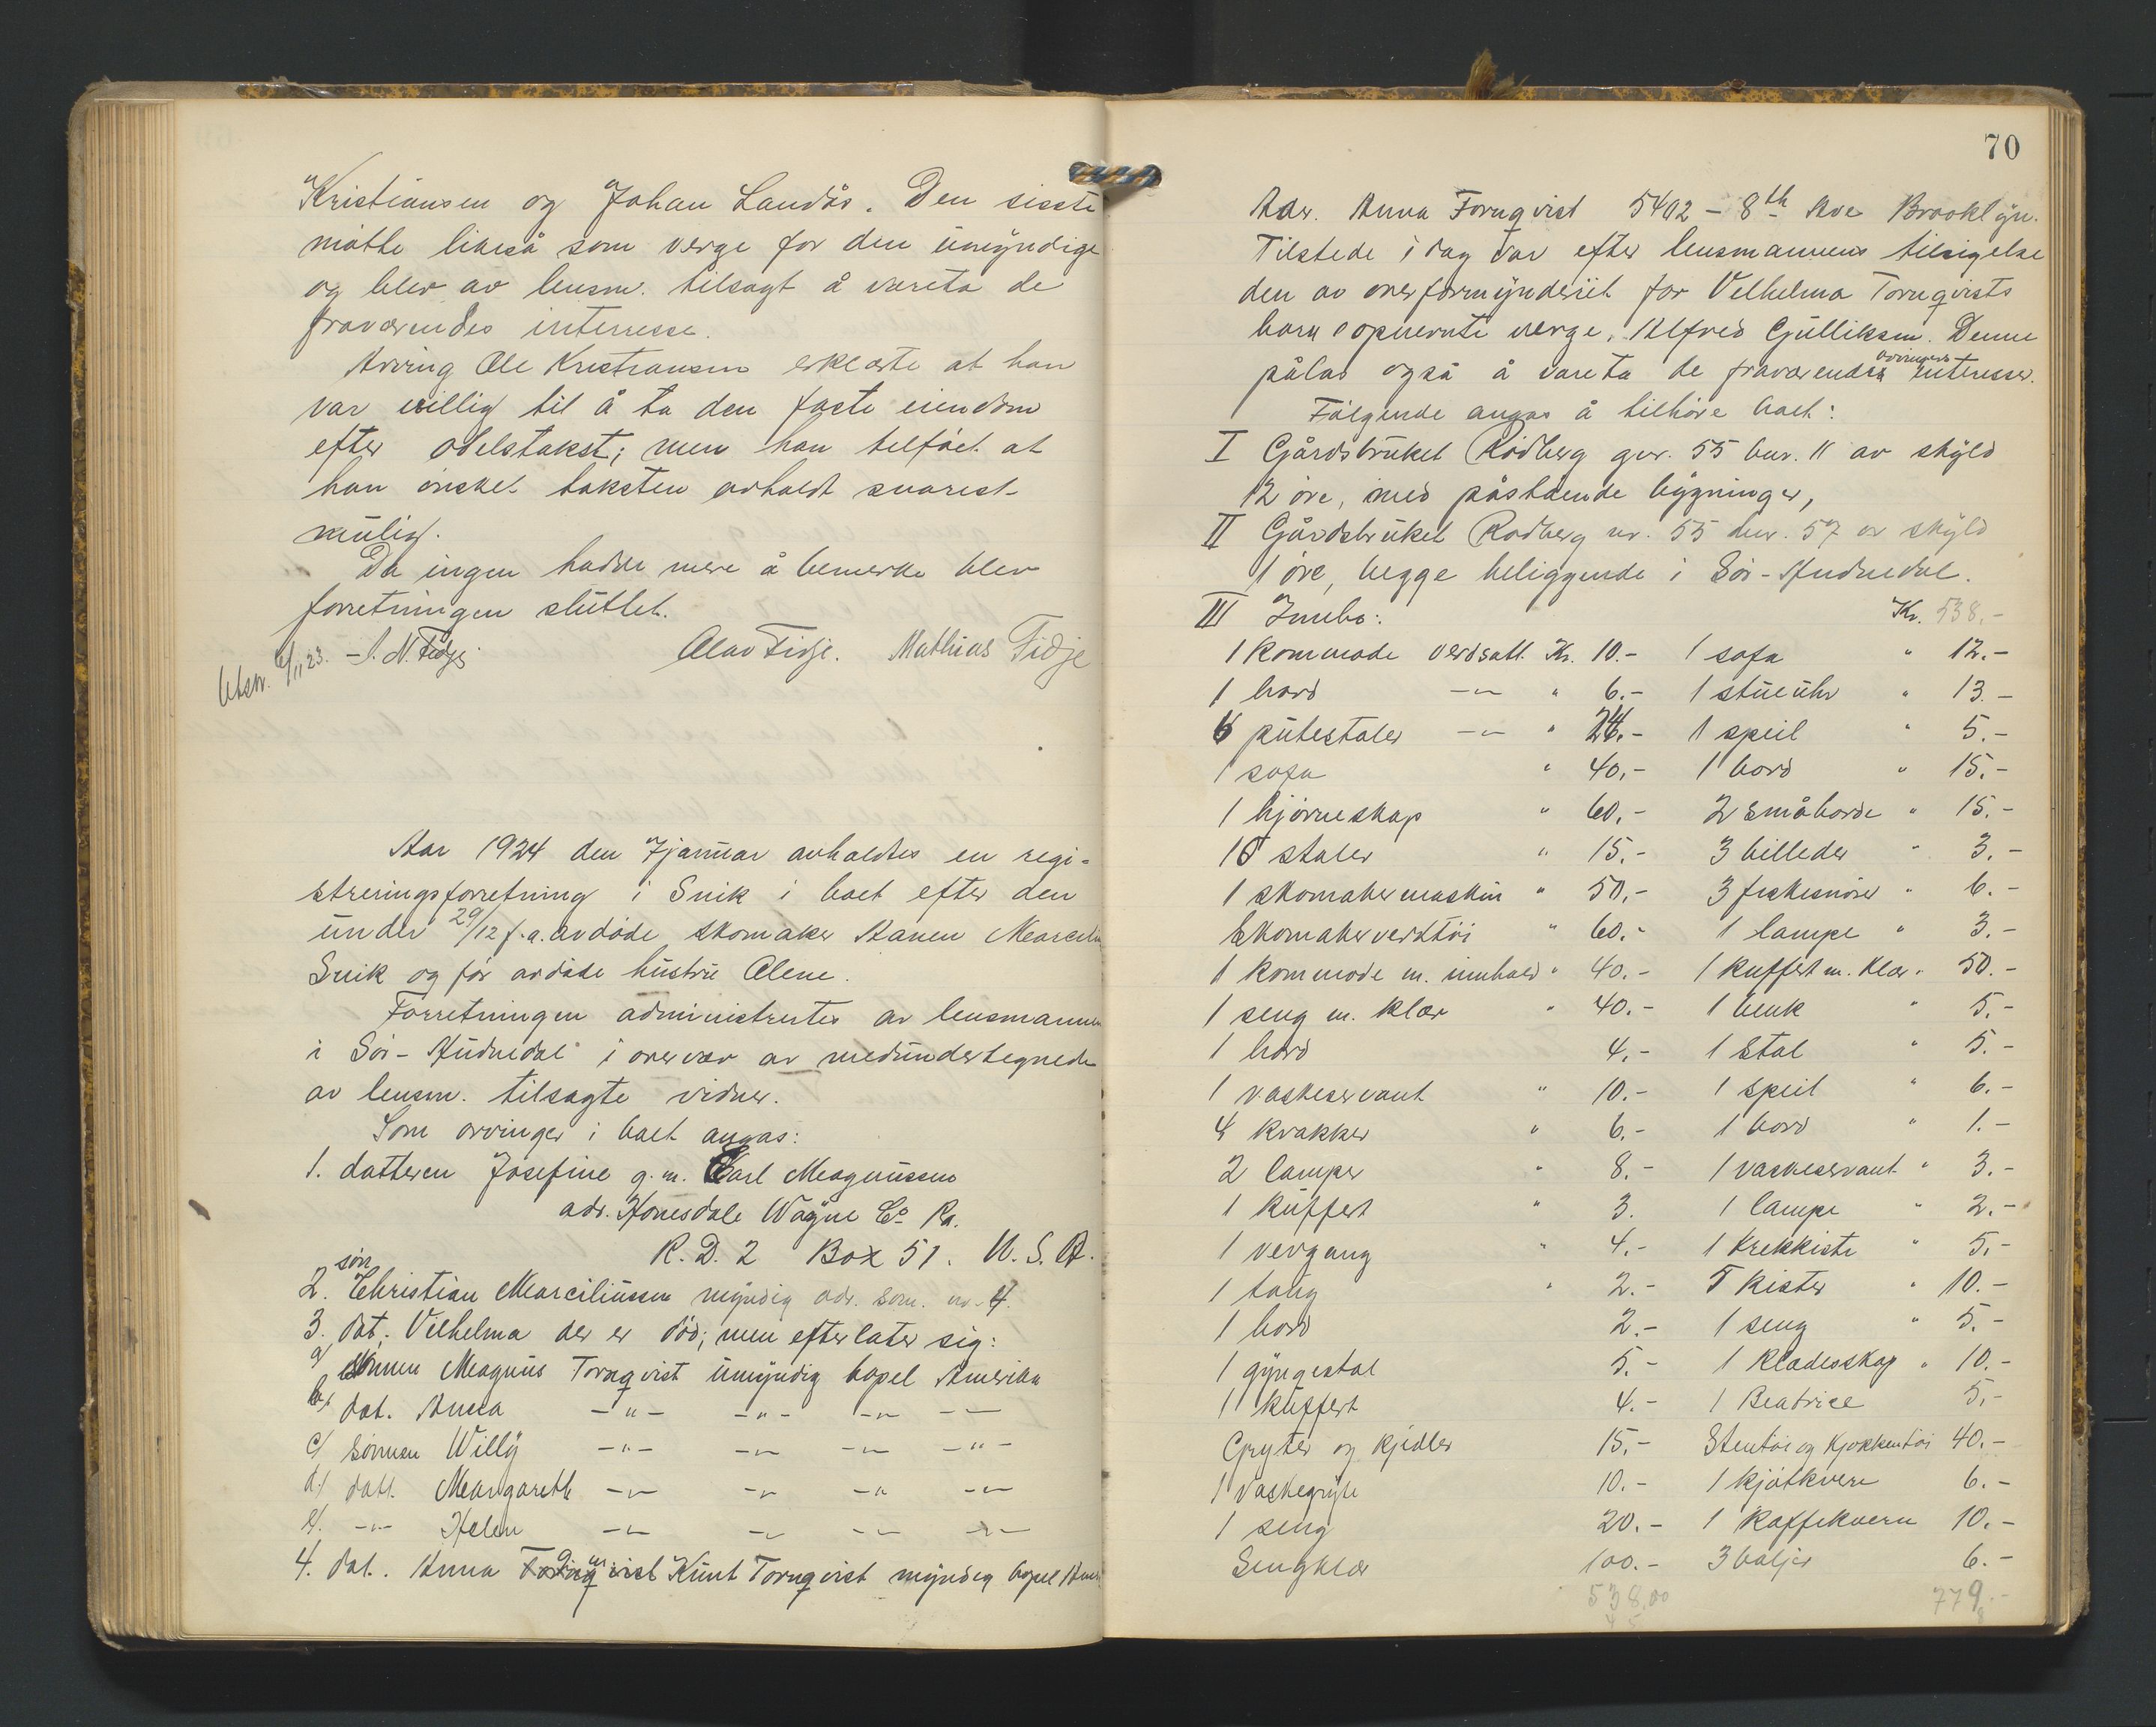 Kristiansen og Johan Landås. Den sisste
møtte likeså som verge for den umyndige
og blev av lensm. tilsagt å vareta de
fraværendes interesse.
Arving Ole Kristiansen erklærte at han
var villig til å ta den faste eiendom
efter odelstakst; men han tilføiet at
han ønsket taksten avholdt snarest
mulig.
Da ingen hadde mere å bemerke blev
forretningen sluttet.
Utskr. 6/11 23. S. N. Fidje. Olav Fidje. Mathias Fidje
Aar 1924 den 7 januar avholdtes en regi-
streringsforretning i Snik i boet efter den
under 29/12 f.a. avdøde skomaker Aanen Marcelin
Snik og før avdøde hustru Olene.
Forretningen administrertes av lensmannen
i Sør-Audnedal i overvær av medundertegnede
av lensm. tilsagte vidner.
Som arvinger i boet angas:
1. datteren Josefine g. m. Carl Magnussen
adr. Honesdale Wayne Co Pa.
R. D. 2 Box 51. U. S. A.
2. søn Christian Marciliussen myndig adr. som nr. 4.
3. dat. Vilhelma der er død; men efterlater sig:
a/ sønnen Magnus Tornqvist umyndig bopel Amerika
b/ dat. Anna -"- -"- -"- -"-
c/ sønnen Willy -"- -"- -"- -"-
d/ datt. Margareth -"- -"- -"- -"-
e/ -"- Helen -"- -"- -"- -"-
4. dat. Anna g. m. Knut Tornqvist myndig bopel Amer.
70
Adr. Anna Tornqvist 5402 - 8th Ave Brooklyn.
Tilstede i dag var efter lensmannens tilsigelse
den av overformynderiet for Velhelma Tornqvists
barn opnevnte verge, Alfred Gulliksen. Denne
pålas også å vareta de fraværende arvingers interesser.
Følgende angas å tilhøre boet:
I Gårdsbruket Rødberg gnr. 55 bnr. 11 av skyld
12 øre, med påstående bygninger,
II Gårdsbruket Rødberg nr. 55 bnr. 57 av skyld
1 øre, begge beliggende i Sør-Audnedal.
III Innbo: Kr. 538.-
1 kommode verdsatt Kr. 10.- 1 sofa " 12.-
1 bord -"- " 6.- 1 stueuhr " 13.-
6 putestoler -"- " 24.- 1 speil " 5.-
1 sofa " 40.- 1 bord " 15.-
1 hjørneskap " 60.- 2 småborde " 15.-
15 stoler " 15.- 3 billeder " 3.-
1 skomakermaskin " 50.- 3 fiskesnører " 6.-
Skomakerverktøi " 60.- 1 lampe " 3.-
1 kommode m. innhold " 40.- 1 kuffert m. klær " 50.-
1 seng m. klær " 40.- 1 benk " 5.-
1 bord 4.- 1 stol " 5.-
1 vaskeservant " 10.- 1 speil " 6.-
4 krakker " 6.- 1 bord " 1.-
2 lamper " 8.- 1 vaskeservant " 3.-
1 kuffert " 3. 1 lampe " 2.-
1 vevgang " 4.- 1 trekkiste " 5.-
1 talig " 2.- 5 kister " 10.-
1 bord 2.- 1 seng " 5.-
1 gyngestol 5.- 1 klædesskap " 10.-
1 kuffert 4.- 1 Beatrice 5.-
Gryter og kjedler 15.- Stentøi og kjøkkentøi 40.-
1 vaskegryte 10.- 1 kjøtkvern 6.-
1 seng 20.- 1 kaffekvern 10.-
Sengklær 100.- 3 baljer 6.-
538.00 779.-